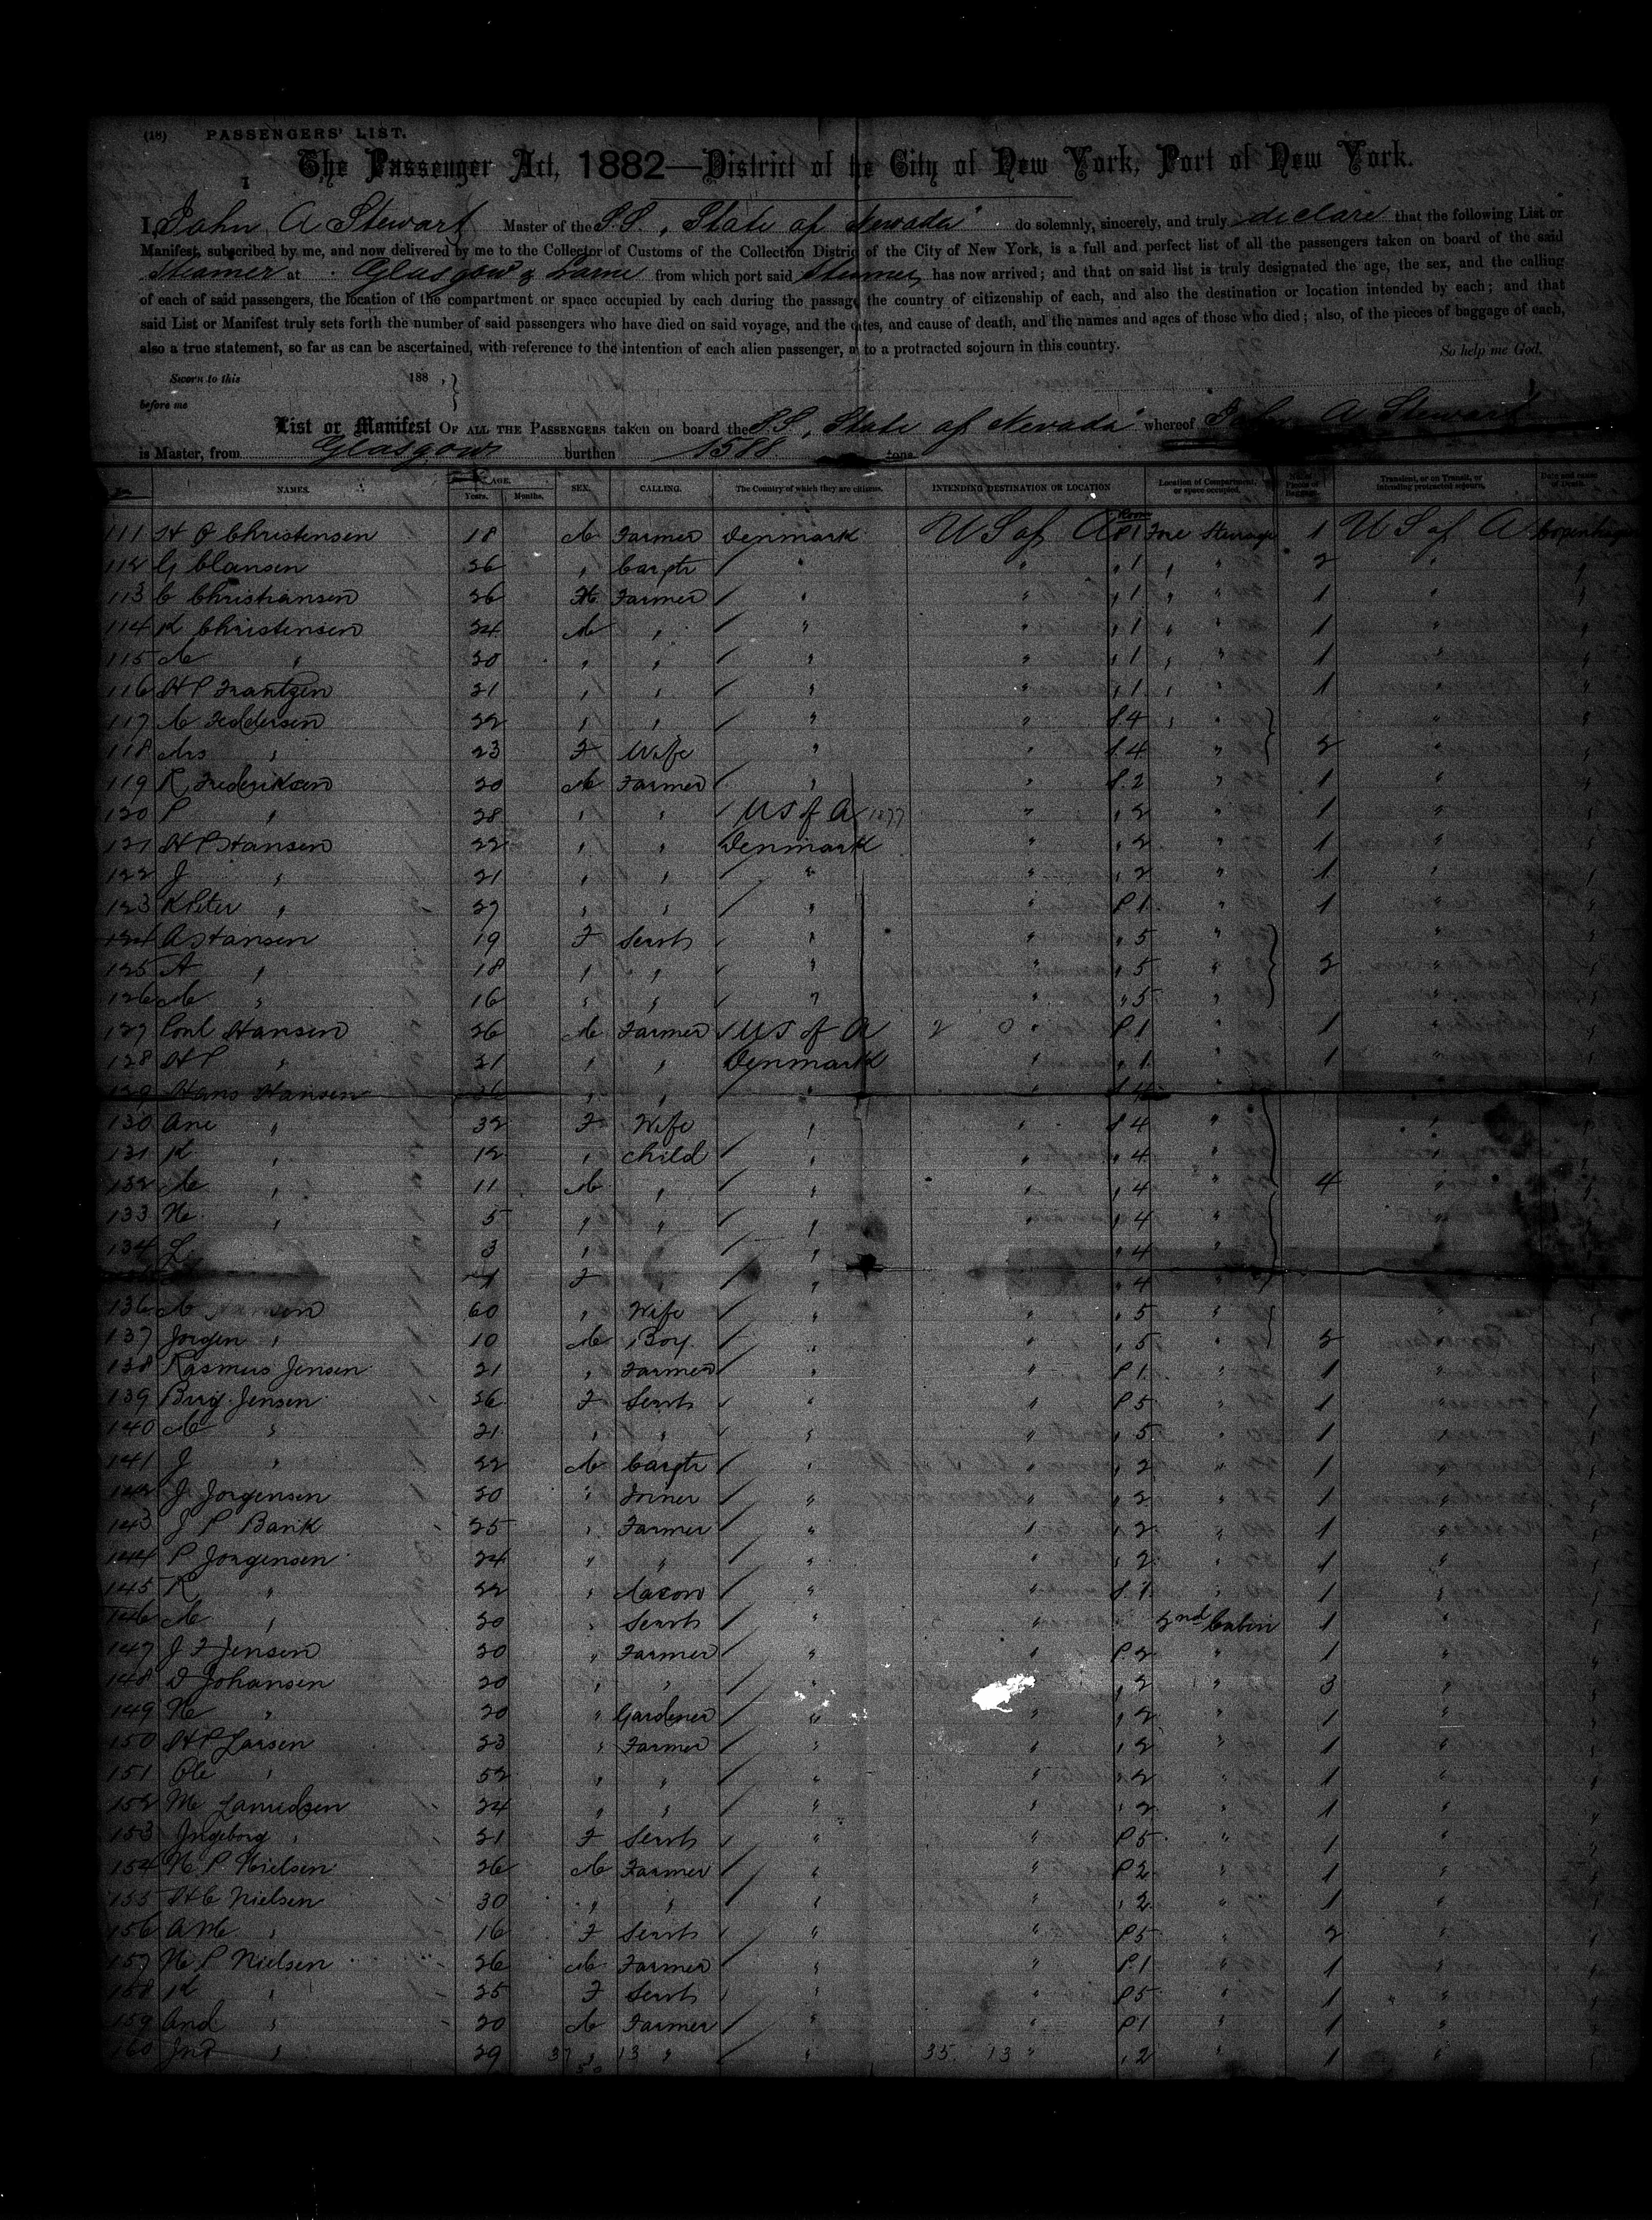 (18) PASSENGERS' LIST.
The Passenger Act, 1882—District of the City of New York, Port of New York.
I, John A Stewart Master of the S.S. "State of Nevada" do solemnly, sincerely, and truly declare that the following List or
Manifest, subscribed by me, and now delivered by me to the Collector of Customs of the Collection District of the City of New York, is a full and perfect list of all the passengers taken on board of the said
Steamer at Glasgow & Larne from which port said Steamer has now arrived; and that on said list is truly designated the age, the sex, and the calling
of each of said passengers, the location of the compartment or space occupied by each during the passage the country of citizenship of each, and also the destination or location intended by each; and that
said List or Manifest truly sets forth the number of said passengers who have died on said voyage, and the dates, and cause of death, and the names and ages of those who died; also, of the pieces of baggage of each,
also a true statement, so far as can be ascertained, with reference to the intention of each alien passenger, as to a protracted sojourn in this country. So help me God.
Sworn to this 188 ,
before me
List or Manifest OF ALL THE PASSENGERS taken on board the S.S. "State of Nevada" whereof John A Stewart
is Master, from Glasgow burthen 1588 tons
NAMES. AGE. Years. Months. SEX. CALLING. The Country of which they are citizens. INTENDING DESTINATION OR LOCATION Location of Compartment, or space occupied. No. of Pieces of Baggage. Transient, or on Transit, or intending protracted sojourn. Date and cause of Death.
111 H P Christensen 18 M Farmer Denmark U S of A P 1 Fore Steerage 1 U S of A Copenhagen
112 G Clansen 26 " Carptr " " " 1 " " 2 " "
113 C Christiansen 26 M Farmer " " " 1 " " 1 " "
114 K Christensen 24 M " " " " 1 " " 1 " "
115 M " 20 " " " " " 1 " " 1 " "
116 H P Frantzen 21 " " " " " 1 " " 1 " "
117 C Feddersen 22 " " " " S.4 " " " "
118 Mrs " 23 F Wife " " S.4 " 2 " "
119 R Frederiksen 20 M Farmer " " S.2 " 1 " "
120 P " 28 " " U S of A 1877 " " 2 " 1 " "
121 H P Hansen 22 " " Denmark " " 2 " 1 " "
122 J " 21 " " " " " 2 " 1 " "
123 K Peter " 27 " " " " P 1 " 1 " "
124 A Hansen 19 F Servt " " " 5 " " "
125 A " 18 " " " " " 5 " 2 " "
126 M " 16 " " " " " 5 " " "
127 Hansen 26 M Farmer U S of A 2 0 " P 1 " 1 " "
128 H P " 21 " " Denmark " " 1 " 1 " "
129 Hans Hansen 36 " " " " S 4 " " "
130 Ane " 32 F Wife " " S 4 " " "
131 K " 12 " Child " " " 4 " " "
132 M " 11 M " " " " 4 " 4 " "
133 N " 5 " " " " " 4 " " "
134 L 3 " " " " 4 " " "
F " " " 4 "
136 M 60 " Wife " " " 5 " " "
137 Jorgen " 10 M Boy " " " 5 " 2 " "
138 Rasmus Jensen 21 " Farmer " " P 1 " 1 " "
139 Birg. Jensen 26 F Servt " " P 5 " 1 " "
140 M " 21 " " " " " 5 " 1 " "
141 J " 22 M Carptr " " " 2 " 1 " "
142 J Jorgensen 20 " Joiner " " " 2 " 1 " "
143 J P Bank 25 " Farmer " " " 2 " 1 " "
144 P Jorgensen 24 " " " " " 2 " 1 " "
145 R " 22 " Mason " " S.1 " 1 " "
146 M " 20 " Servt " " 2nd Cabin 1 " "
147 J F Jensen 20 " Farmer " " P 2 " 1 " "
148 D Johansen 20 " " " " " 2 " 3 " "
149 N " 20 " Gardener " " " 2 " 1 " "
150 H P Larsen 23 " Farmer " " " 2 " 1 " "
151 Ole " 52 " " " " " 2 " 1 " "
152 M 24 " " " " " 2 " 1 " "
153 Ingeborg " 21 F Servt " " P 5 " 1 " "
154 N P Nielsen 26 M Farmer " " P 2 " 1 " "
155 H C Nielsen 30 " " " " " 2 " 1 " "
156 A M " 16 F Servt " " P 5 " 2 " "
157 N P Nielsen 26 M Farmer " " P 1 " 1 " "
158 K " 25 F Servt " " P 5 " 1 " "
159 And " 20 M Farmer " " P 1 " 1 " "
160 " 29 37 " 13 " " 35 13 " " 2 " 1 " "
50